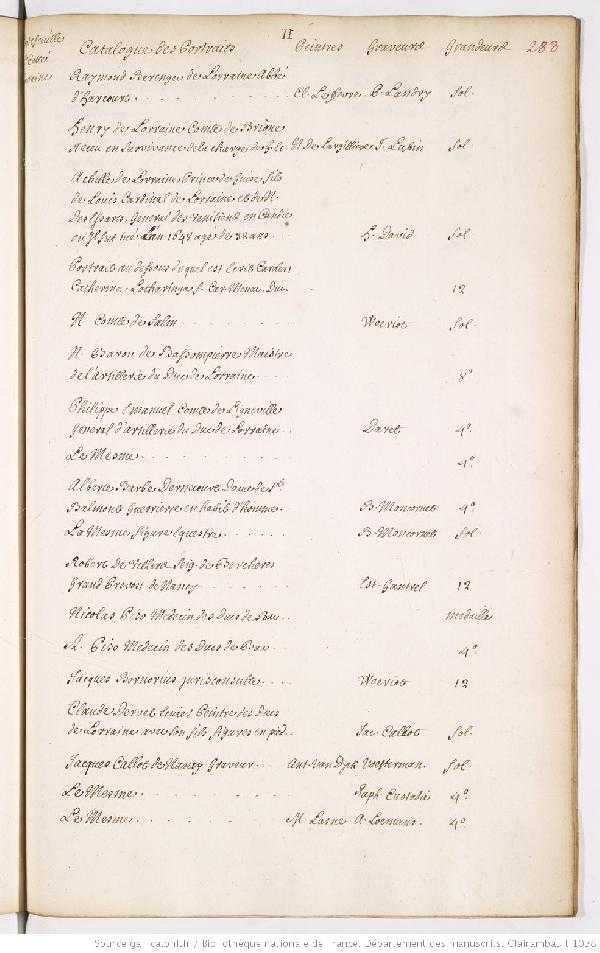 II
Catalogue des Portraits Peintres Graveurs Grandeurs 283
Raymond Berenger de Lorraine Abbé
d'Harcourt Cl. Le Febvre P. Landry fol.
Henry de Lorraine Comte de Brione
Receu en Survivance de la charge de N. De Largilliere J. Lubin fol
Achille de Lorraine Prince de Guise fils
de Louis Cardinal de Lorraine et de N.
Des Essarts. General des Venitiens en Candie
ou Il fut tué L'an 1648 agé de 32 ans H. David fol
Portrait au dessous duquel est Ecrit Carden
Catherina Lotharinga 12
N. Comte de Salm Woeriot fol.
N. Baron de Bassompierre Maistre
de l'artillerie du Duc de Lorraine 8°
Philippe Emanuel Comte de Ligneville
General d'artillerie du Duc de Lorraine Daret 4°
Le Mesme 4°
Alberte Barbe Dernecourt Dame de St
Balmont Guerriere en habit d'homme B. Moncornet 4°
La Mesme figure Equestre B. Moncornet fol.
Robert De Villers Seig. de Bercheres
Grand Prevost de Nancy Est. Gantrel 12
Nicolas Piso Medecin des Ducs de Lorr. medaille
N. Piso Medecin des Ducs de Lorr. 4°
Jacques Bornorius jurisconsulte Woeriot 12
Claude Dervet Ecuier Peintre des Ducs
de Lorraine avec son fils figures en pied Jac. Callot fol.
Jacques Callot de Nancy Graveur Ant. van Dyck Vosterman fol.
Le Mesme Raph. Custodis 4°
Le Mesme M. Lasne A. Loemans 4°
Source gallica.bnf.fr / Bibliothèque nationale de France. Département des manuscrits. Clairambault 1038